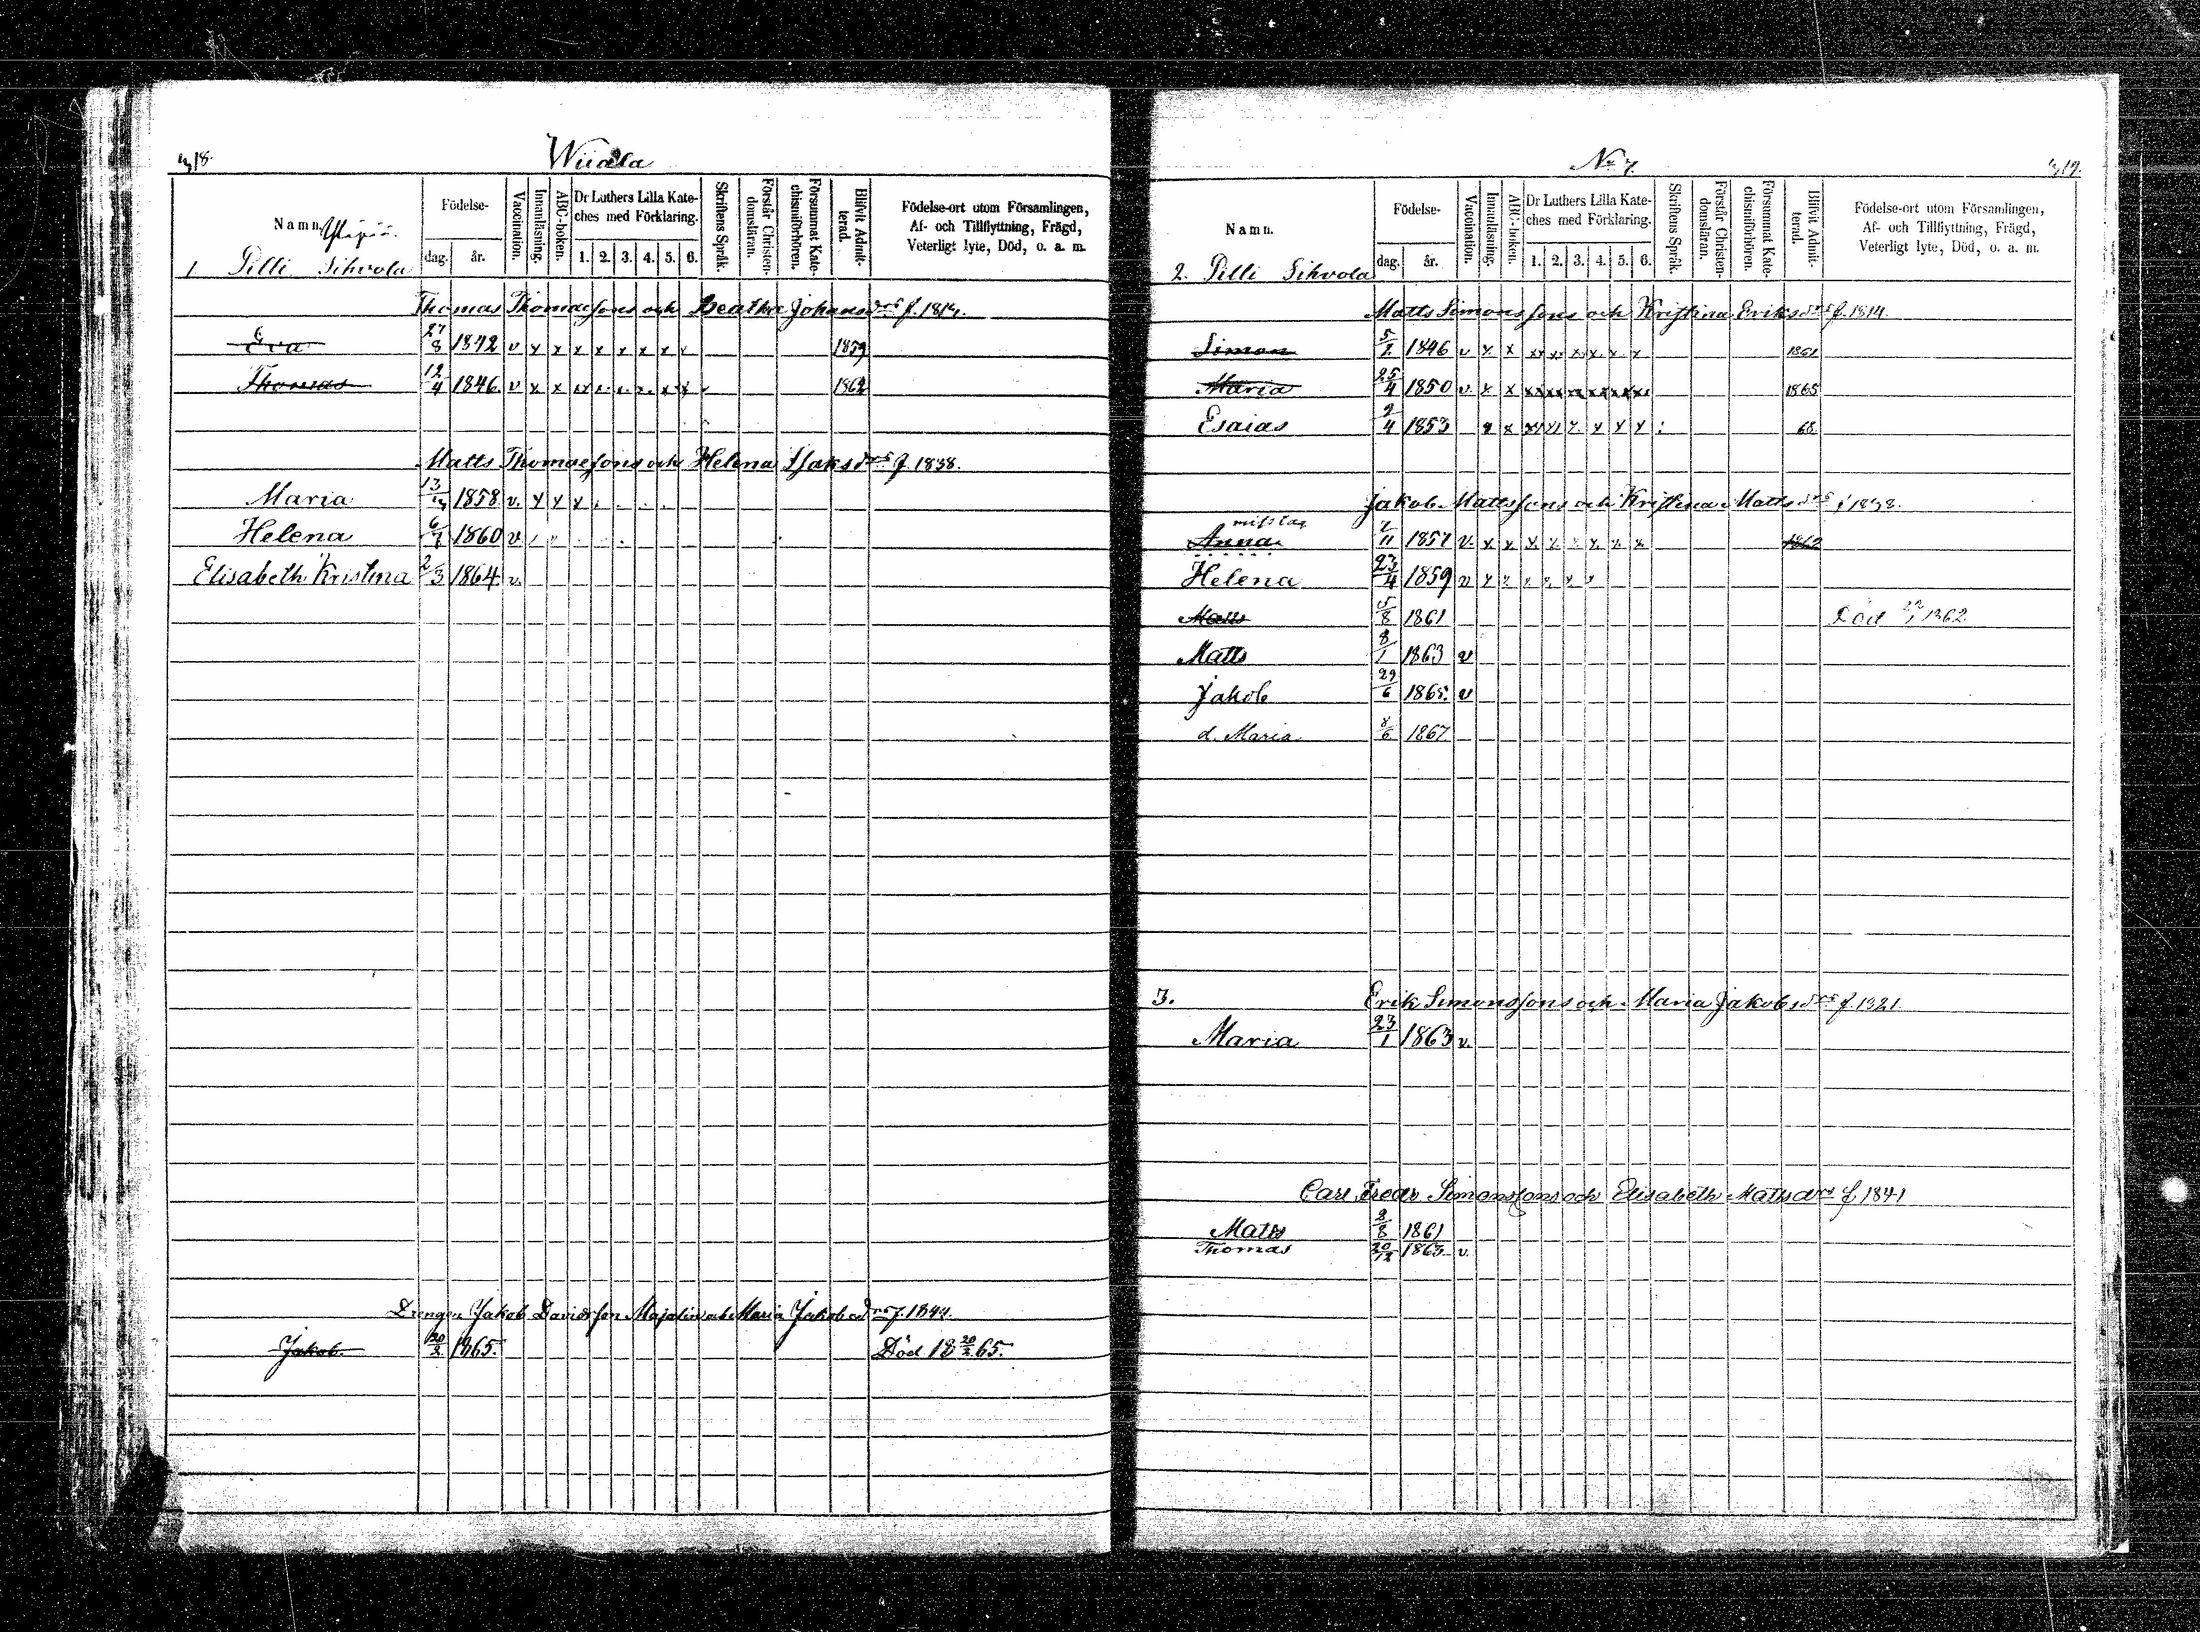 Wiiala
Namn. Födelse- dag. år. Vaccination. Innanläsning. ABC-boken. Dr Luthers Lilla Kateches med Förklaring. 1. 2. 3. 4. 5. 6. Skriftens Språk. Förstår Christendomsläran. Försummat Katechismiförhören. Blifvit Admitterad. Födelse-ort utom Församlingen, Af- och Tillflyttning, Frägd, Veterligt lyte, Död, o. a. m.
1 Pilli Sihvola
Thomas Thomæsons och Beatha Johansdrs f. 1814.
Eva 27/8 1842 v x x x x x x x x 1859
Thomas 12/4 1846 v x x x x x x x x 1862
Matts Thomæsons och Helena Isaksdrs f. 1838.
Maria 1858 v. x x x
Helena 1860 v
Elisabeth Kristina 2/3 1864 v.
Drengen Jakob Davidsson Majalin och Maria Jakobsdrs f. 1844.
Jakob 20/2 1865. Död 18 20/2 65.
No 7.
Namn. Födelse- dag. år. Vaccination. Innanläsning. ABC-boken. Dr Luthers Lilla Kateches med Förklaring. 1. 2. 3. 4. 5. 6. Skriftens Språk. Förstår Christendomsläran. Försummat Katechismiförhören. Blifvit Admitterad. Födelse-ort utom Församlingen, Af- och Tillflyttning, Frägd, Veterligt lyte, Död, o. a. m.
2. Pilli Sihvola
Matts Simonssons och Kristina Eriksdrs f. 1814
Simon 1846 v x x xx xx x x x x 1861
Maria 25/4 1850 v. x x xx xx xx xx xx xx 1865
Esaias 2/4 1853 x x xx xx x x x x 68
Jakob Mattssons och Kristina Mattsdrs f 1838.
misstag
Anna 1857 v. x x x x x x x x 1862
Helena 23/4 1859 v x x x x x x
Matts 5/8 1861 Död 1862
Matts 8/1 1863 v
Jakob 29/6 1865. v
d. Maria 1867
3. Erik Simonssons och Maria Jakobsdrs f. 1821
Maria 23/1 1863 v.
Carl Fredr Simonssons och Elisabeth Mattsdrs f 1841
Matts 2/8 1861
Thomas 20/12 1863 v.